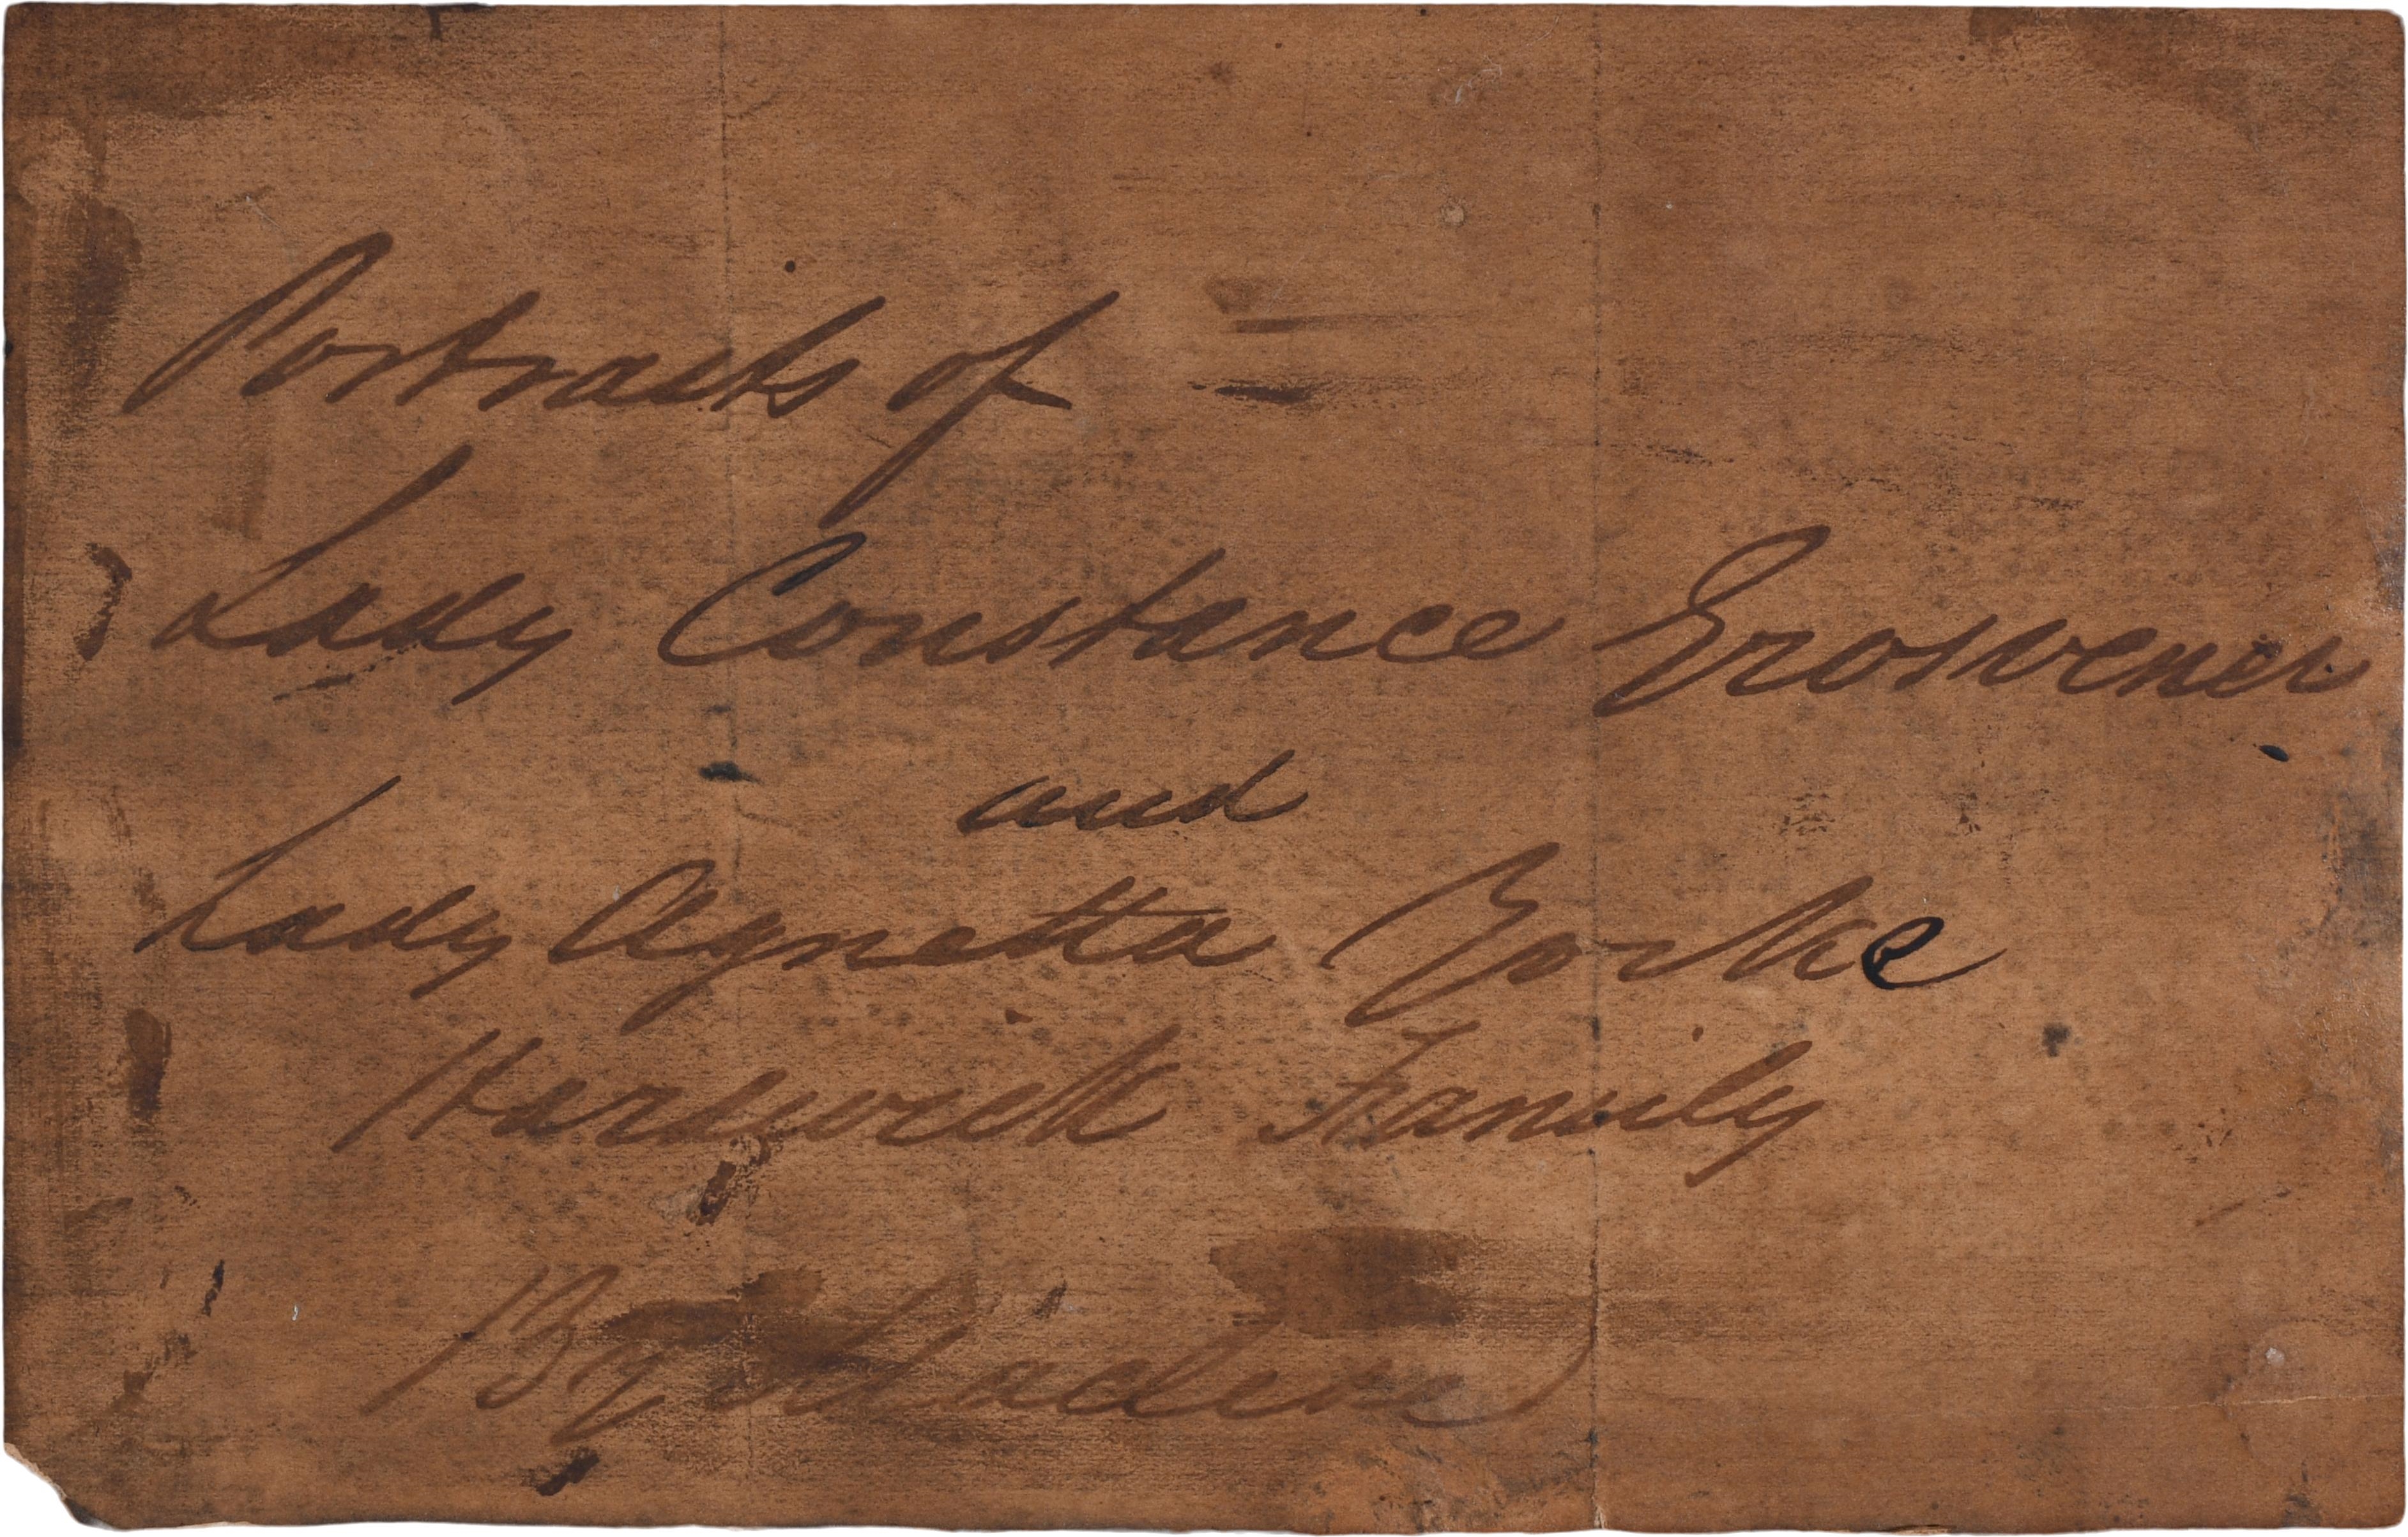 Portraits of
Lady Constance Grosvenor
and
Lady Agnetta Yorke
Hardwick Family
By